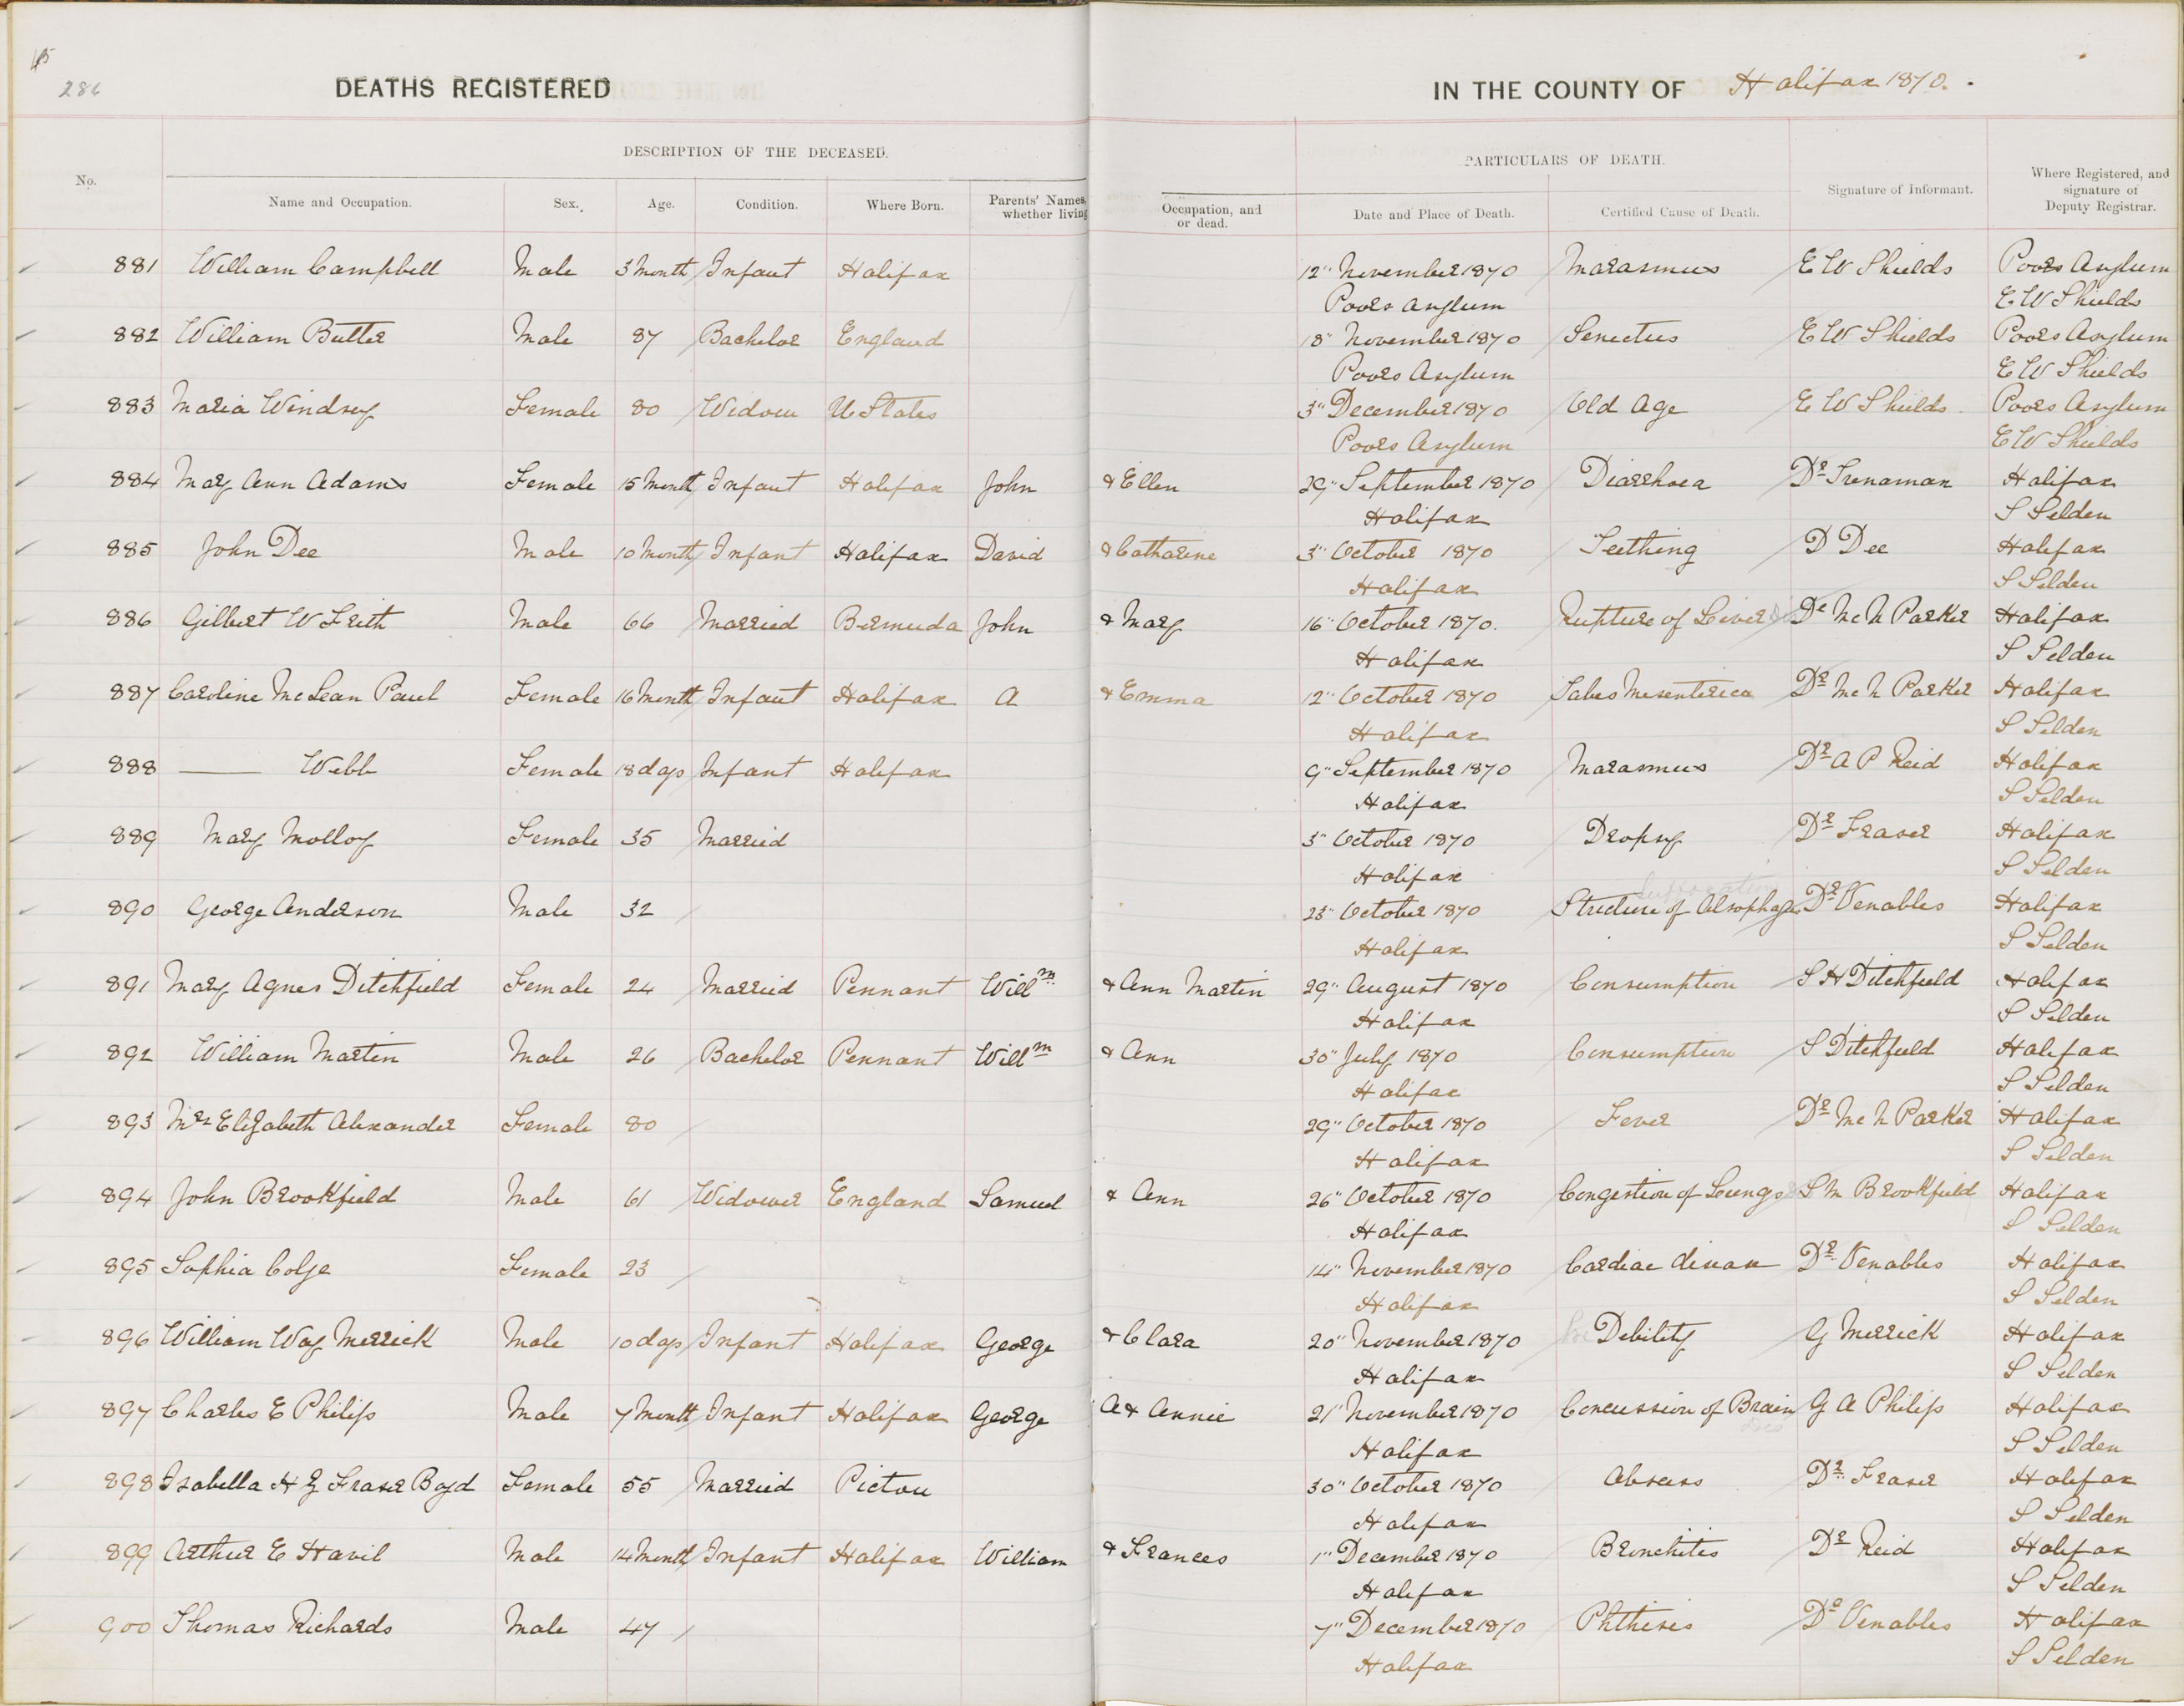 286
DEATHS REGISTERED IN THE COUNTY OF Halifax 1870.
DESCRIPTION OF THE DECEASED. PARTICULARS OF DEATH.
No. Name and Occupation. Sex. Age. Condition. Where Born. Parents' Names, whether living Occupation, and or dead. Date and Place of Death. Certified Cause of Death. Signature of Informant. Where Registered, and signature of Deputy Registrar.
881 William Campbell Male 3 Month Infant Halifax 12" November 1870 Marasmus E W Shields Poors Asylum
Poors Asylum E W Shields
882 William Butler Male 87 Bachelor England 18" November 1870 Senectus E W Shields Poors Asylum
Poors Asylum E W Shields
883 Maria Windsey Female 80 Widow U States 3" December 1870 Old Age E W Shields Poors Asylum
Poors Asylum E W Shields
884 Mary Ann Adams Female 15 Month Infant Halifax John & Ellen 29" September 1870 Diarrhoea Dr Trenaman Halifax
Halifax S Selden
885 John Dee Male 10 Month Infant Halifax David & Catharine 3" October 1870 Teething D Dee Halifax
Halifax S Selden
886 Gilbert W Frith Male 66 Married Bermuda John & Mary 16" October 1870. Rupture of Liver Dr Mc N Parker Halifax
Halifax S Selden
887 Caroline McLean Paul Female 16 Month Infant Halifax A & Emma 12" October 1870 Tabes Mesenterica Dr Mc N Parker Halifax
Halifax S Selden
888 —— Webb Female 18 days Infant Halifax 9" September 1870 Marasmus Dr A P Reid Halifax
Halifax S Selden
889 Mary Molloy Female 35 Married 3" October 1870 Dropsy Dr Fraser Halifax
Halifax S Selden
890 George Anderson Male 32 23" October 1870 Stricture of Alsophages Dr Venables Halifax
Halifax S Selden
891 Mary Agnes Ditchfield Female 24 Married Pennant Willm & Ann Martin 29" August 1870 Consumption S H Ditchfield Halifax
Halifax S Selden
892 William Martin Male 26 Bachelor Pennant Willm & Ann 30" July 1870 Consumption S Ditchfield Halifax
Halifax S Selden
893 Mrs Elizabeth Alexander Female 80 29" October 1870 Fever Dr Mc N Parker Halifax
Halifax S Selden
894 John Brookfield Male 61 Widower England Samuel & Ann 26" October 1870 Congestion of Lungs S M Brookfield Halifax
Halifax S Selden
895 Sophia Female 23 14" November 1870 Cardiac disease Dr Venables Halifax
Halifax S Selden
896 William Way Merrick Male 10 days Infant Halifax George & Clara 20" November 1870 Debility G Merrick Halifax
Halifax S Selden
897 Charles E Philip Male 7 Month Infant Halifax George A & Annie 21" November 1870 Concussion of Brain G A Philip Halifax
Halifax S Selden
898 Isabella H G Fraser Boyd Female 55 Married Pictou 30" October 1870 Abscess Dr Fraser Halifax
Halifax S Selden
899 Arthur E Havil Male 14 Month Infant Halifax William & Frances 1" December 1870 Bronchitis Dr Reid Halifax
Halifax S Selden
900 Thomas Richards Male 47 7" December 1870 Phthisis Dr Venables Halifax
Halifax S Selden